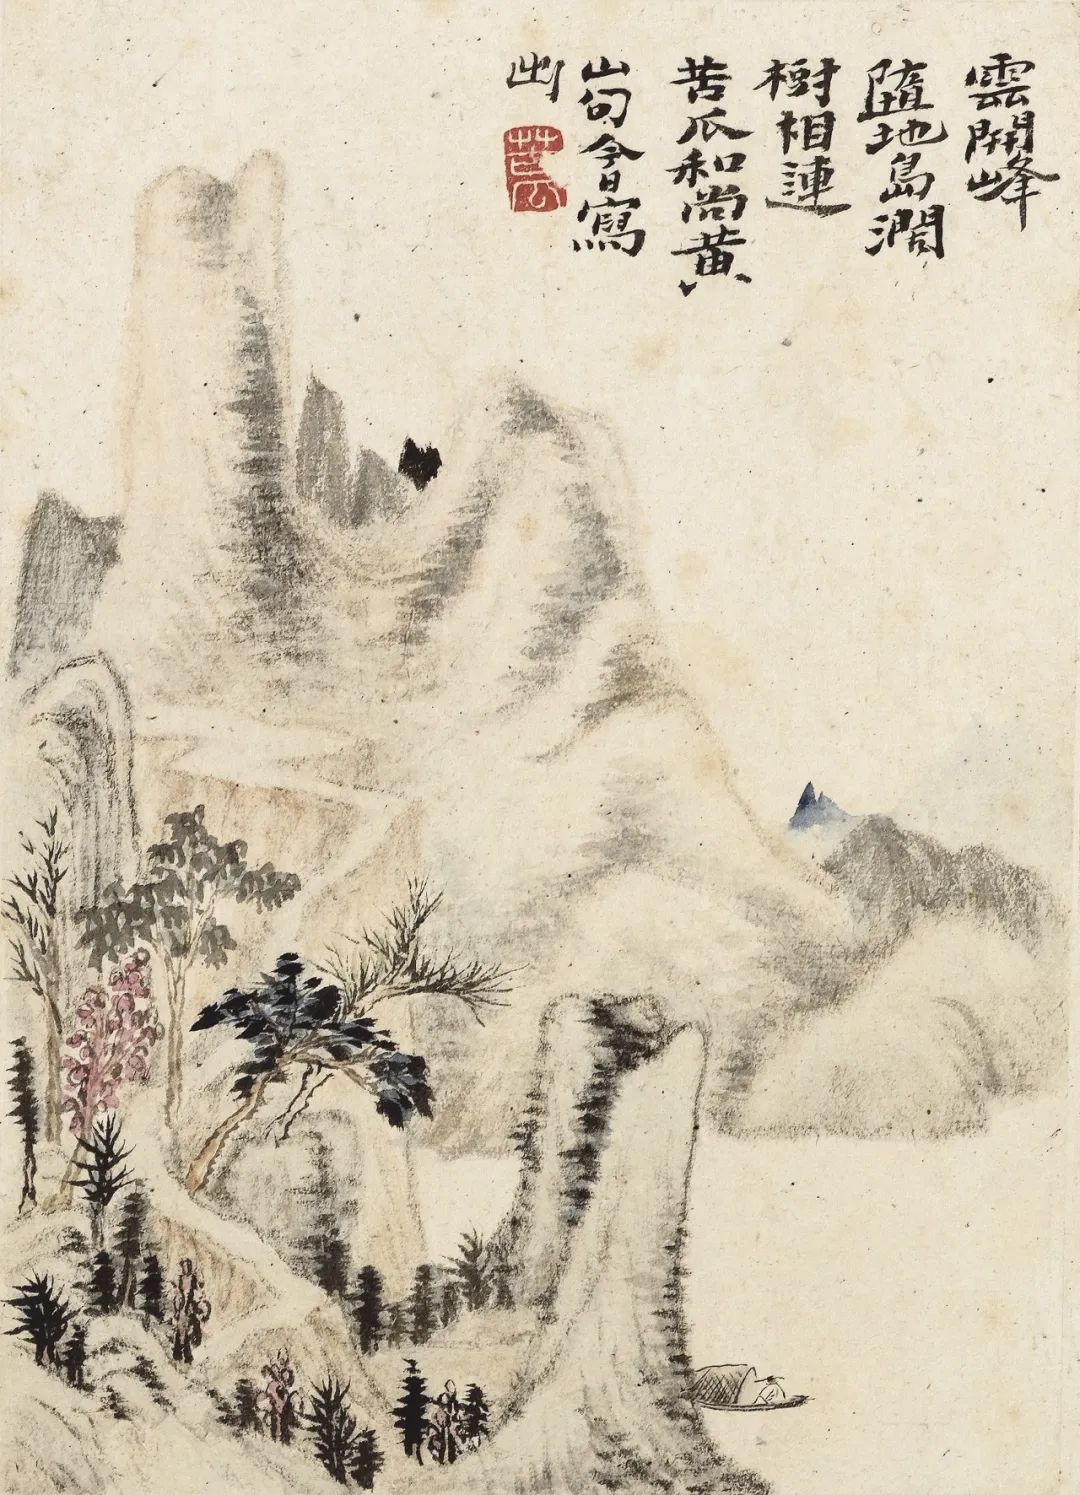 雲開峰
墮地島濶
樹相連
苦瓜和尚黃
山句今日寫
出